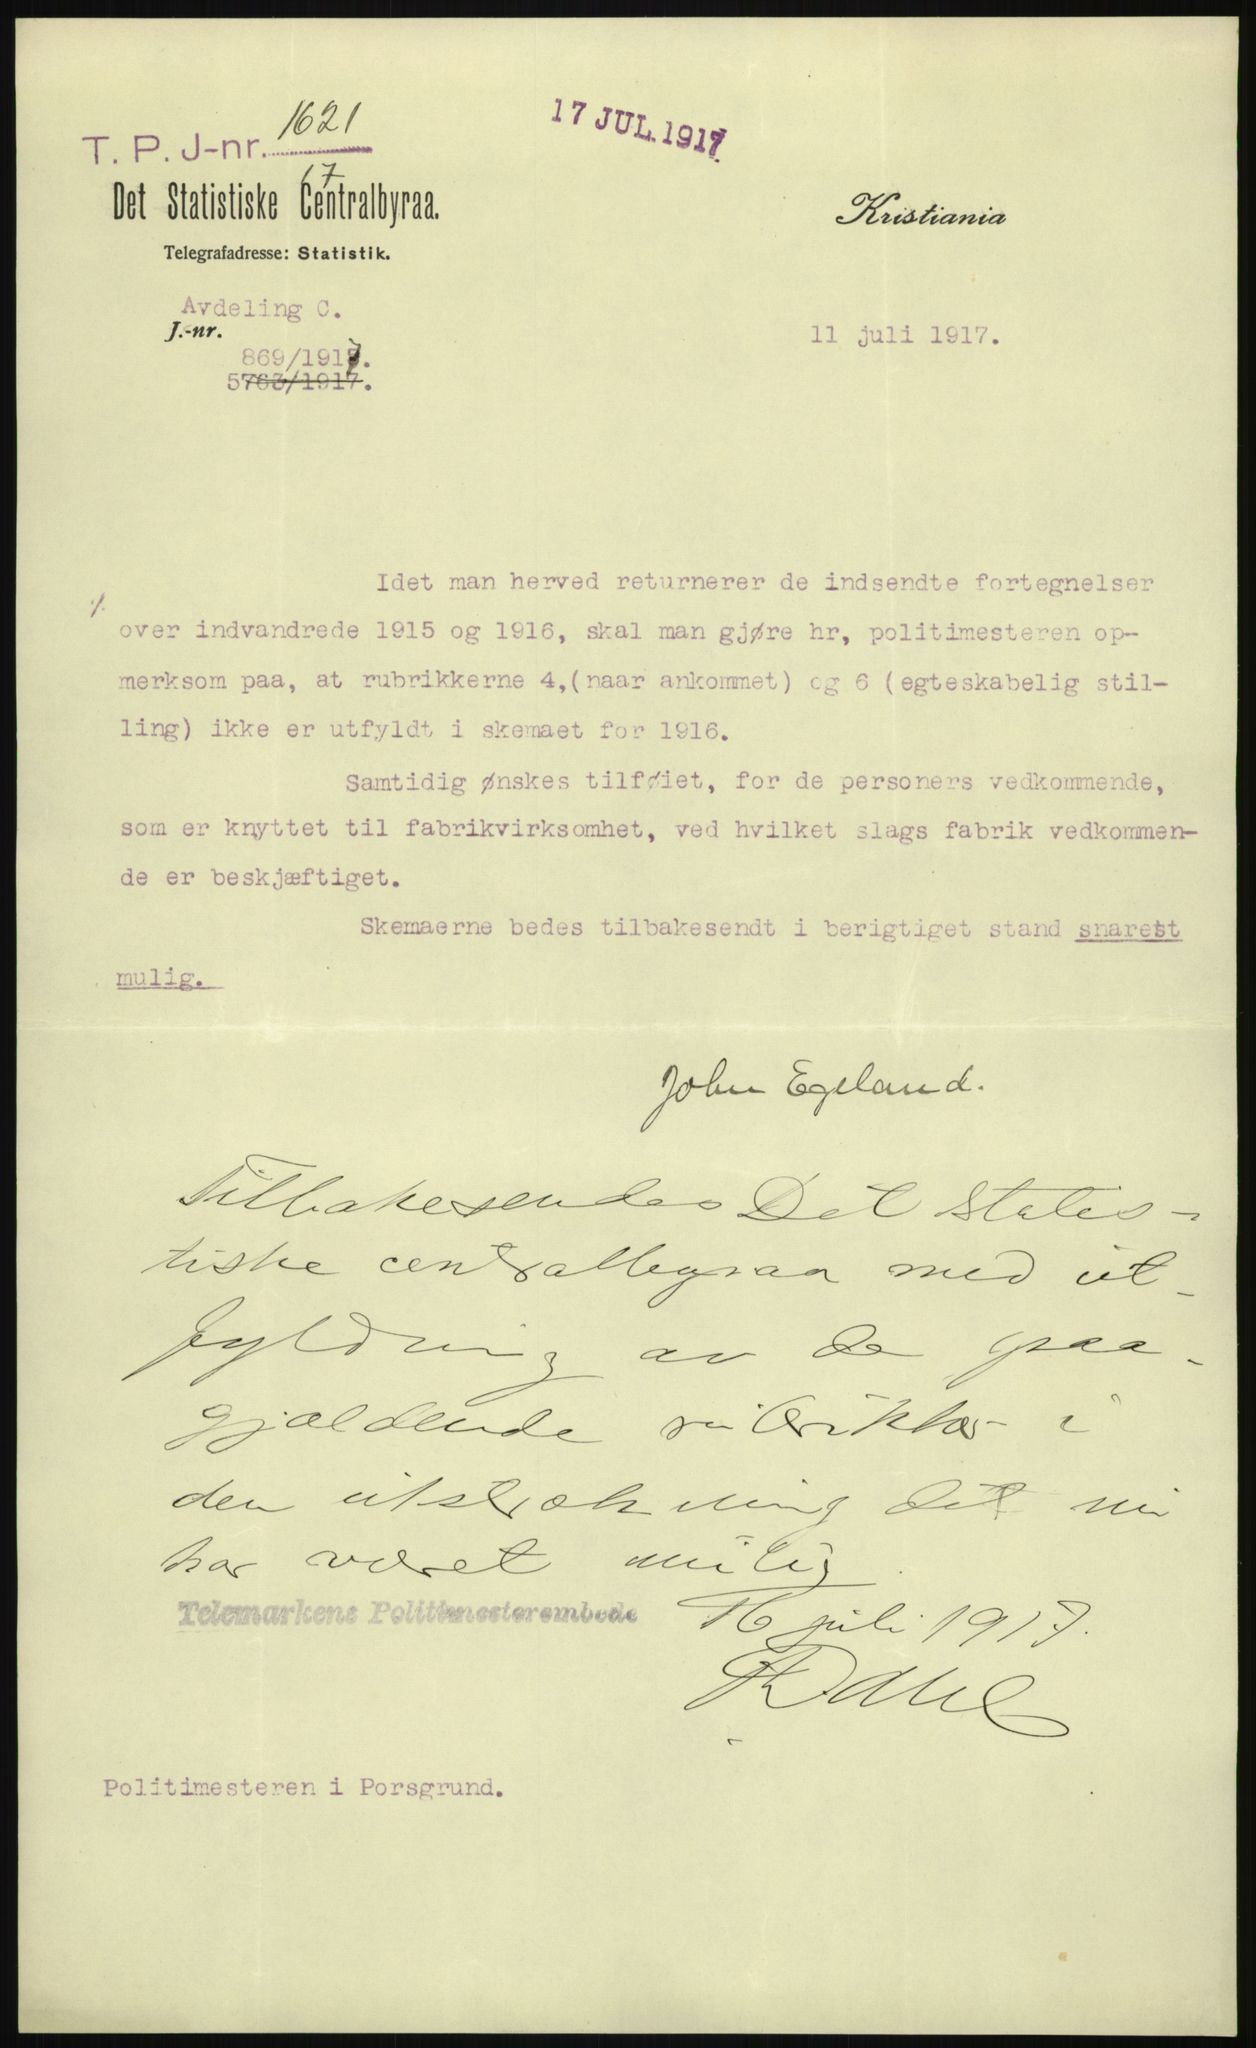 T. P. J-nr. 1621
17
17 JUL. 1917
Det Statistiske Centralbyraa.
Telegrafadresse: Statistik.
Kristiania
Avdeling C.
J.-nr.
869/1917.
5763/1917.
11 juli 1917.
Idet man herved returnerer de indsendte fortegnelser
over indvandrede 1915 og 1916, skal man gjøre hr, politimesteren op-
merksom paa, at rubrikkerne 4,(naar ankommet) og 6 (egteskabelig stil-
ling) ikke er utfyldt i skemaet for 1916.
Samtidig ønskes tilføiet, for de personers vedkommende,
som er knyttet til fabrikvirksomhet, ved hvilket slags fabrik vedkommen-
de er beskjæftiget.
Skemaerne bedes tilbakesendt i berigtiget stand snarest
mulig.
John Egeland.
Tilbakesendes Det Statis-
tiske centralbyraa med ut-
fyldning av de paa-
gjældende rubrikker i
den utstrækning det nu
har været mulig.
Telemarkens Politimesterembede
16 juli 1917.
Dahl
Politimesteren i Porsgrund.